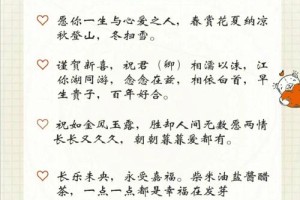 愿你一生与心爱之人，春赏花夏纳凉
秋登山，冬扫雪。
谨贺新喜，祝君（卿）相濡以沫，江
你湖同游，念念在兹，相依白首，早
生贵子，百年好合。
祝如金风玉露，胜却人间无数愿两情
长长又久久，朝朝暮暮爱都有。
长乐未央，永受嘉福。柴米油盐酱醋
茶，一点一点都是幸福在发芽